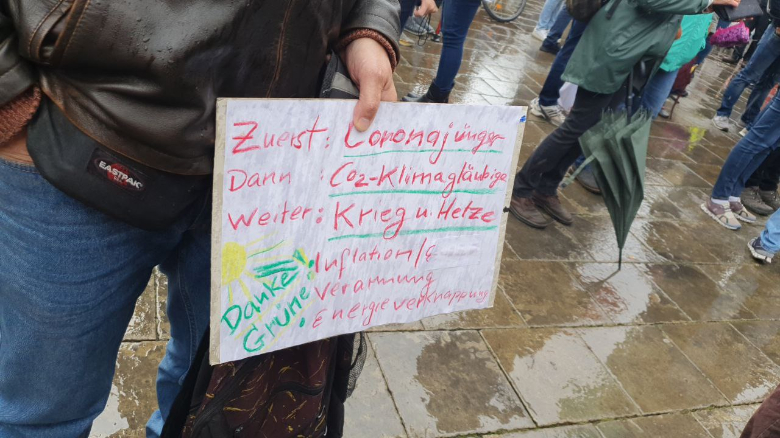 EASTPAK
Zuerst: Coronajünger
Dann : CO2-Klimagläubige
Weiter: Krieg u. Hetze
Inflation/
Verarmung
Energieverknappung
Danke
Grüne!